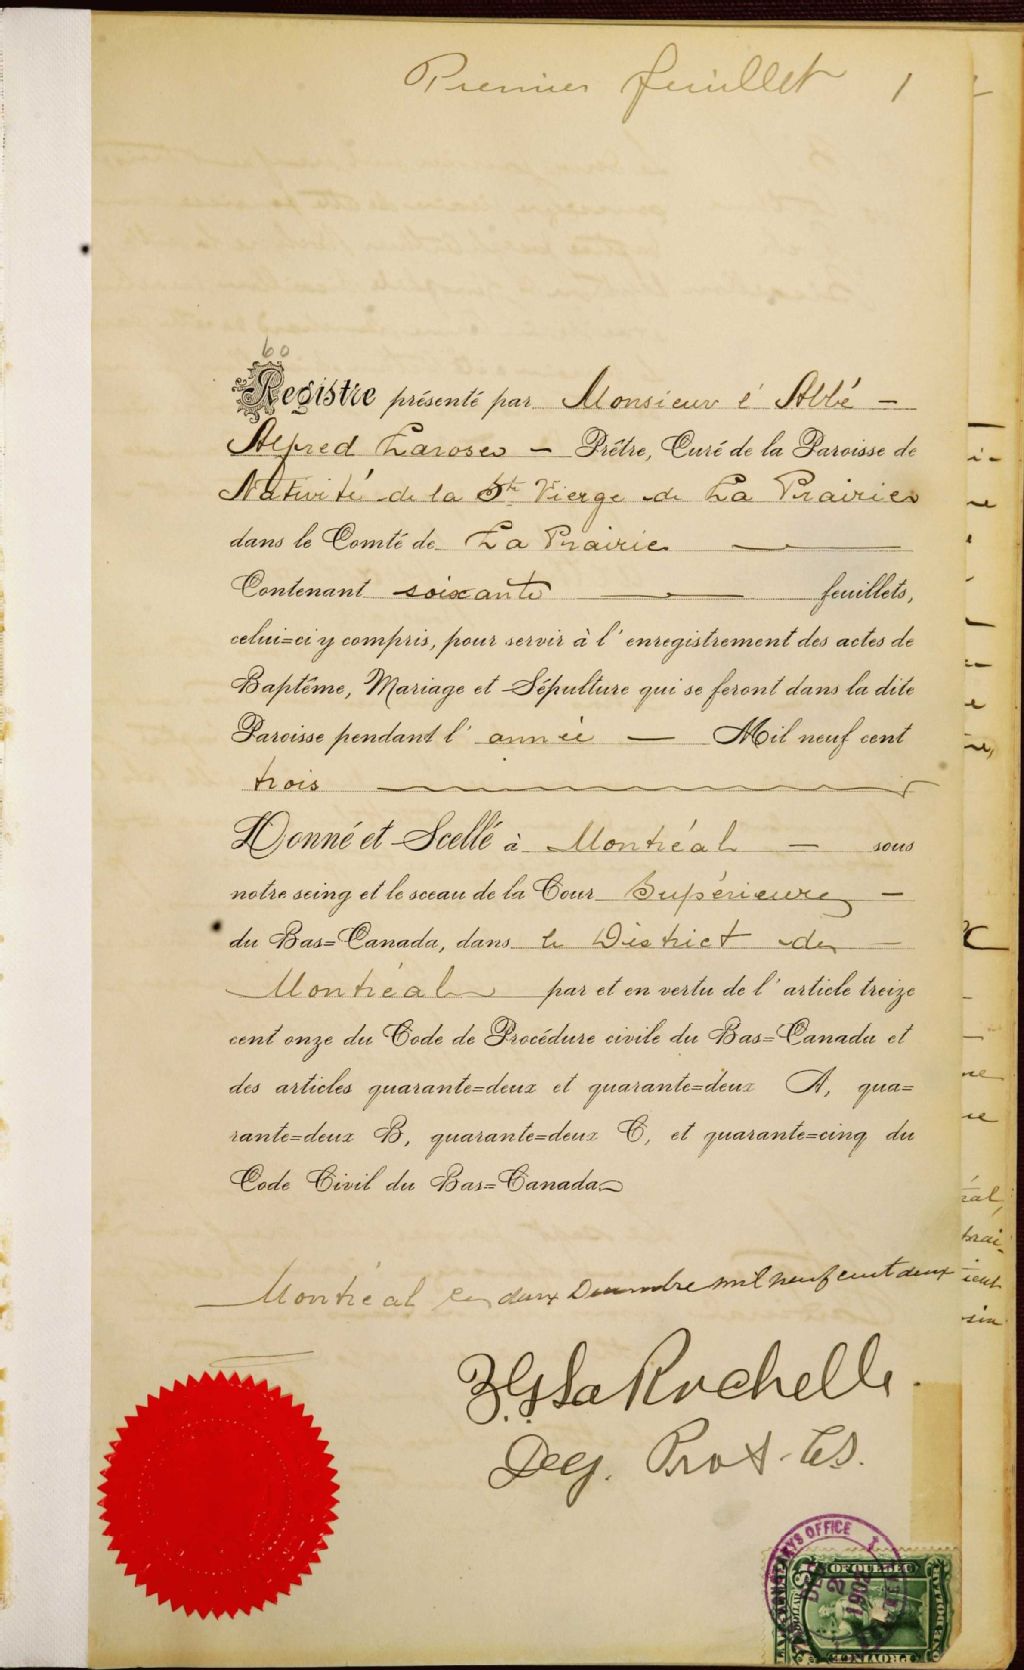 Premier feuillet 1
60
Registre présenté par Monsieur l'Abbé —
Alfred Larose — Prêtre, Curé de la Paroisse de
Nativité de la Ste Vierge de La Prairie
dans le Comté de La Prairie
Contenant soixante feuillets,
celui=ci y compris, pour servir à l'enregistrement des actes de
Baptême, Mariage et Sépulture qui se feront dans la dite
Paroisse pendant l'année — Mil neuf cent
trois
Donné et Scellé à Montréal — sous
notre seing et le sceau de la Cour Supérieure —
du Bas=Canada, dans le District de —
Montréal par et en vertu de l'article treize
cent onze du Code de Procédure civile du Bas=Canada et
des articles quarante=deux et quarante=deux A, qua=
rante=deux B, quarante=deux C, et quarante=cinq du
Code Civil du Bas=Canada
Montréal ce deux Decembre mil neuf cent deux
Z. G. LaRochelle.
Dep. Prot. C.S.
OFFICE
DEC
2
1902
OF QUEBEC
ONE DOLLAR
PROVINCE